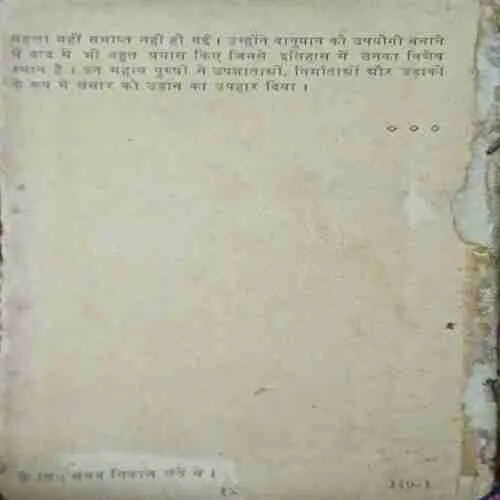 महत्ता यहीं समाप्त नहीं हो गई। उन्होंने वायुयान को उपयोगी बनाने
में बाद में भी बहुत प्रयास किए जिनसे इतिहास में उनका विशेष
स्थान है। उन महान पुरुषों ने उपज्ञाताओं, निर्माताओं और उड़ाकों
के रूप में संसार को उड़ान का उपहार दिया।
० ० ०
के लिए समय निकाल लेते थे।